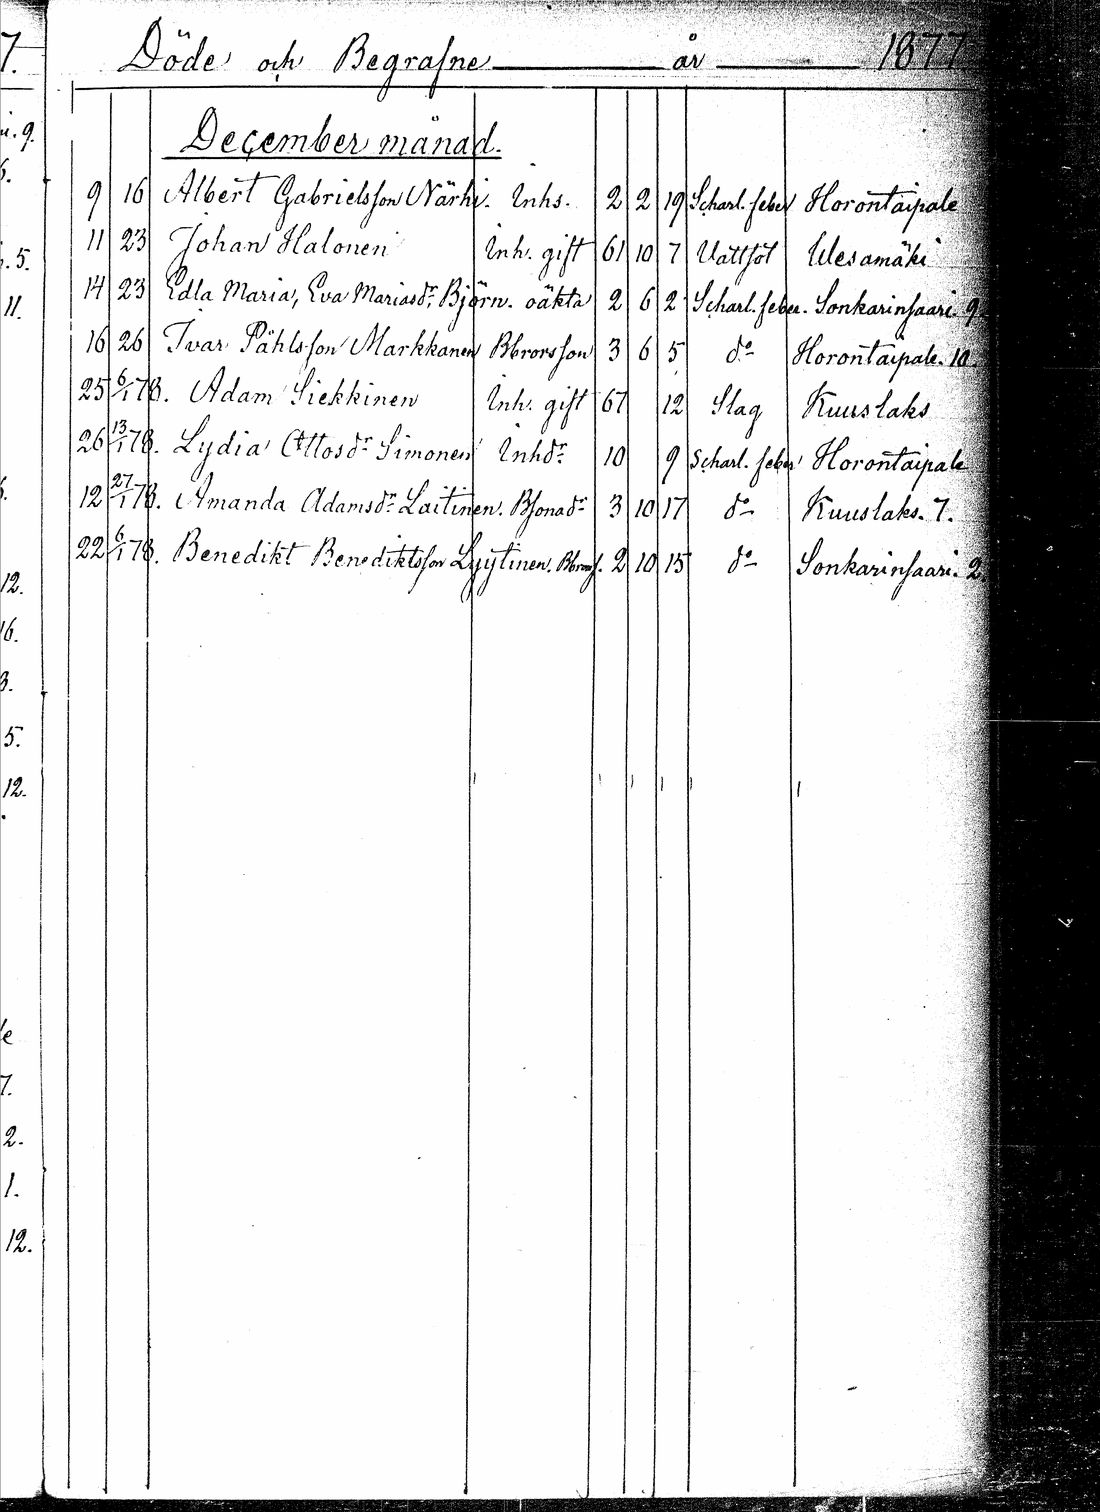 Döde och Begrafne år 1877
December månad.
9 16 Albert Gabrielsson Närhi. Inhs. 2 2 19 Scharl. feber Horontaipale
11 23 Johan Halonen Inh. gift 61 10 7 Vattsot Ulesamäki
14 23 Edla Maria, Eva Mariasdr, Björn. oäkta 2 6 2 Scharl. feber. Sonkarinsaari. 9
16 26 Ivar Påhlsson Markkanen Bbrorsson 3 6 5 do Horontaipale. 10.
25 6/1 78. Adam Siekkinen Inh. gift 67 12 Slag Kuuslaks
26 13/1 78. Lydia Ottosdr Simonen Inhdr 10 9 Scharl. feber Horontaipale
12 27/1 78. Amanda Adamsdr Laitinen. Bsonadr 3 10 17 do Kuuslaks. 7.
22 6/1 78. Benedikt Benediktsson Lyytinen. 2 10 15 do Sonkarinsaari. 2.
7.
9.
5.
11.
12.
16.
3.
5.
12.
7.
2.
1.
12.